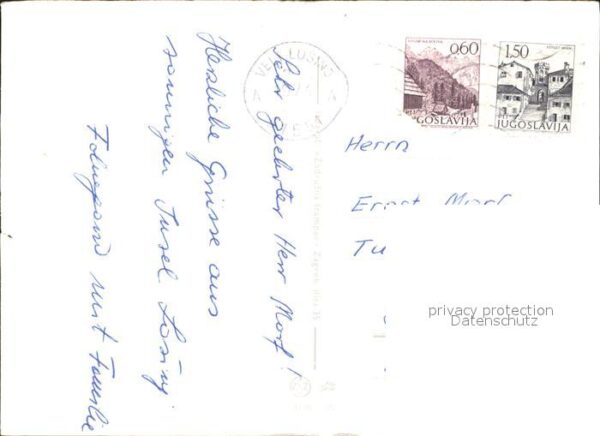 Sehr geehrter Herr Morf!
Herzliche Grüsse aus
sonnigen Insel Lošinj
Ferdinand mit Familie
0.60
JUGOSLAVIJA
1,50
JUGOSLAVIJA
VELI LOŠINJ
Herrn
Ernst Morf
Tu
privacy protection
Datenschutz